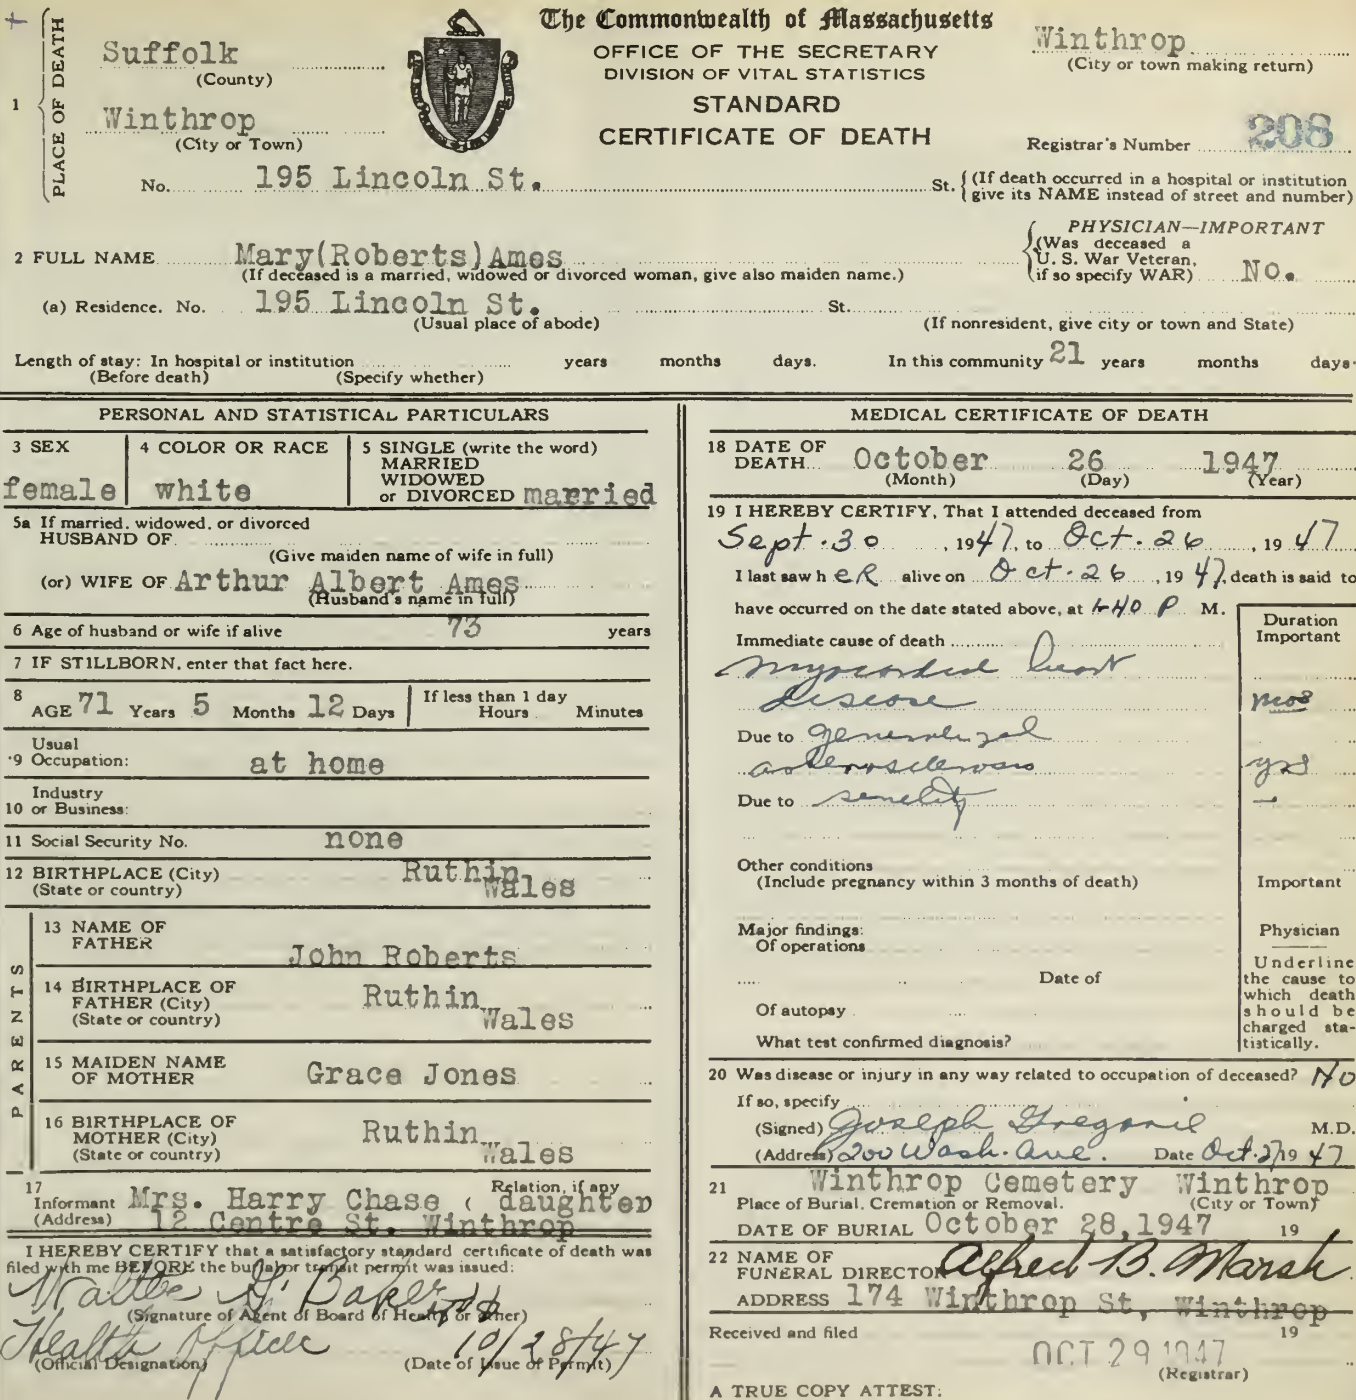 The Commonwealth of Massachusetts
OFFICE OF THE SECRETARY
DIVISION OF VITAL STATISTICS
STANDARD
CERTIFICATE OF DEATH
1 PLACE OF DEATH
Suffolk
(County)
Winthrop
(City or Town)
Winthrop
(City or town making return)
Registrar's Number 208
No. 195 Lincoln St. St. { (If death occurred in a hospital or institution give its NAME instead of street and number)
2 FULL NAME Mary(Roberts)Ames
(If deceased is a married, widowed or divorced woman, give also maiden name.)
PHYSICIAN—IMPORTANT
(Was deceased a
U. S. War Veteran,
if so specify WAR) No.
(a) Residence. No. 195 Lincoln St. St.
(Usual place of abode) (If nonresident, give city or town and State)
Length of stay: In hospital or institution years months days. In this community 21 years months days.
(Before death) (Specify whether)
PERSONAL AND STATISTICAL PARTICULARS
3 SEX
female
4 COLOR OR RACE
white
5 SINGLE (write the word)
MARRIED
WIDOWED
or DIVORCED married
5a If married, widowed, or divorced
HUSBAND OF
(Give maiden name of wife in full)
(or) WIFE OF Arthur Albert Ames
(Husband's name in full)
6 Age of husband or wife if alive 73 years
7 IF STILLBORN, enter that fact here.
8 AGE 71 Years 5 Months 12 Days
If less than 1 day
Hours Minutes
Usual
9 Occupation: at home
Industry
10 or Business:
11 Social Security No. none
12 BIRTHPLACE (City) Ruthin
(State or country) Wales
PARENTS
13 NAME OF
FATHER John Roberts
14 BIRTHPLACE OF
FATHER (City) Ruthin
(State or country) Wales
15 MAIDEN NAME
OF MOTHER Grace Jones
16 BIRTHPLACE OF
MOTHER (City) Ruthin
(State or country) Wales
17 Informant Mrs. Harry Chase ( Relation, if any daughter
(Address) 12 Centre St. Winthrop
I HEREBY CERTIFY that a satisfactory standard certificate of death was
filed with me BEFORE the burial or transit permit was issued:
Walter G. Baker
(Signature of Agent of Board of Health or other)
Health Officer 10/28/47
(Official Designation) (Date of Issue of Permit)
MEDICAL CERTIFICATE OF DEATH
18 DATE OF
DEATH October 26 1947
(Month) (Day) (Year)
19 I HEREBY CERTIFY, That I attended deceased from
Sept. 30, 1947, to Oct. 26, 1947
I last saw her alive on Oct. 26, 1947, death is said to
have occurred on the date stated above, at 1:40 P M.
Duration
Important
Immediate cause of death
myocardial heart
disease mos
Due to generalized
arteriosclerosis yrs
Due to senility —
Other conditions
(Include pregnancy within 3 months of death)
Important
Major findings:
Of operations
Date of
Of autopsy
What test confirmed diagnosis?
Physician
Underline
the cause to
which death
should be
charged sta-
tistically.
20 Was disease or injury in any way related to occupation of deceased? No
If so, specify
(Signed) Joseph Gregorie M.D.
(Address) 200 Wash. Ave. Date Oct. 27 19 47
21 Winthrop Cemetery Winthrop
Place of Burial, Cremation or Removal. (City or Town)
DATE OF BURIAL October 28, 1947 19
22 NAME OF
FUNERAL DIRECTOR Alfred B. Marsh
ADDRESS 174 Winthrop St, Winthrop
Received and filed 19
OCT 29 1947
(Registrar)
A TRUE COPY ATTEST: